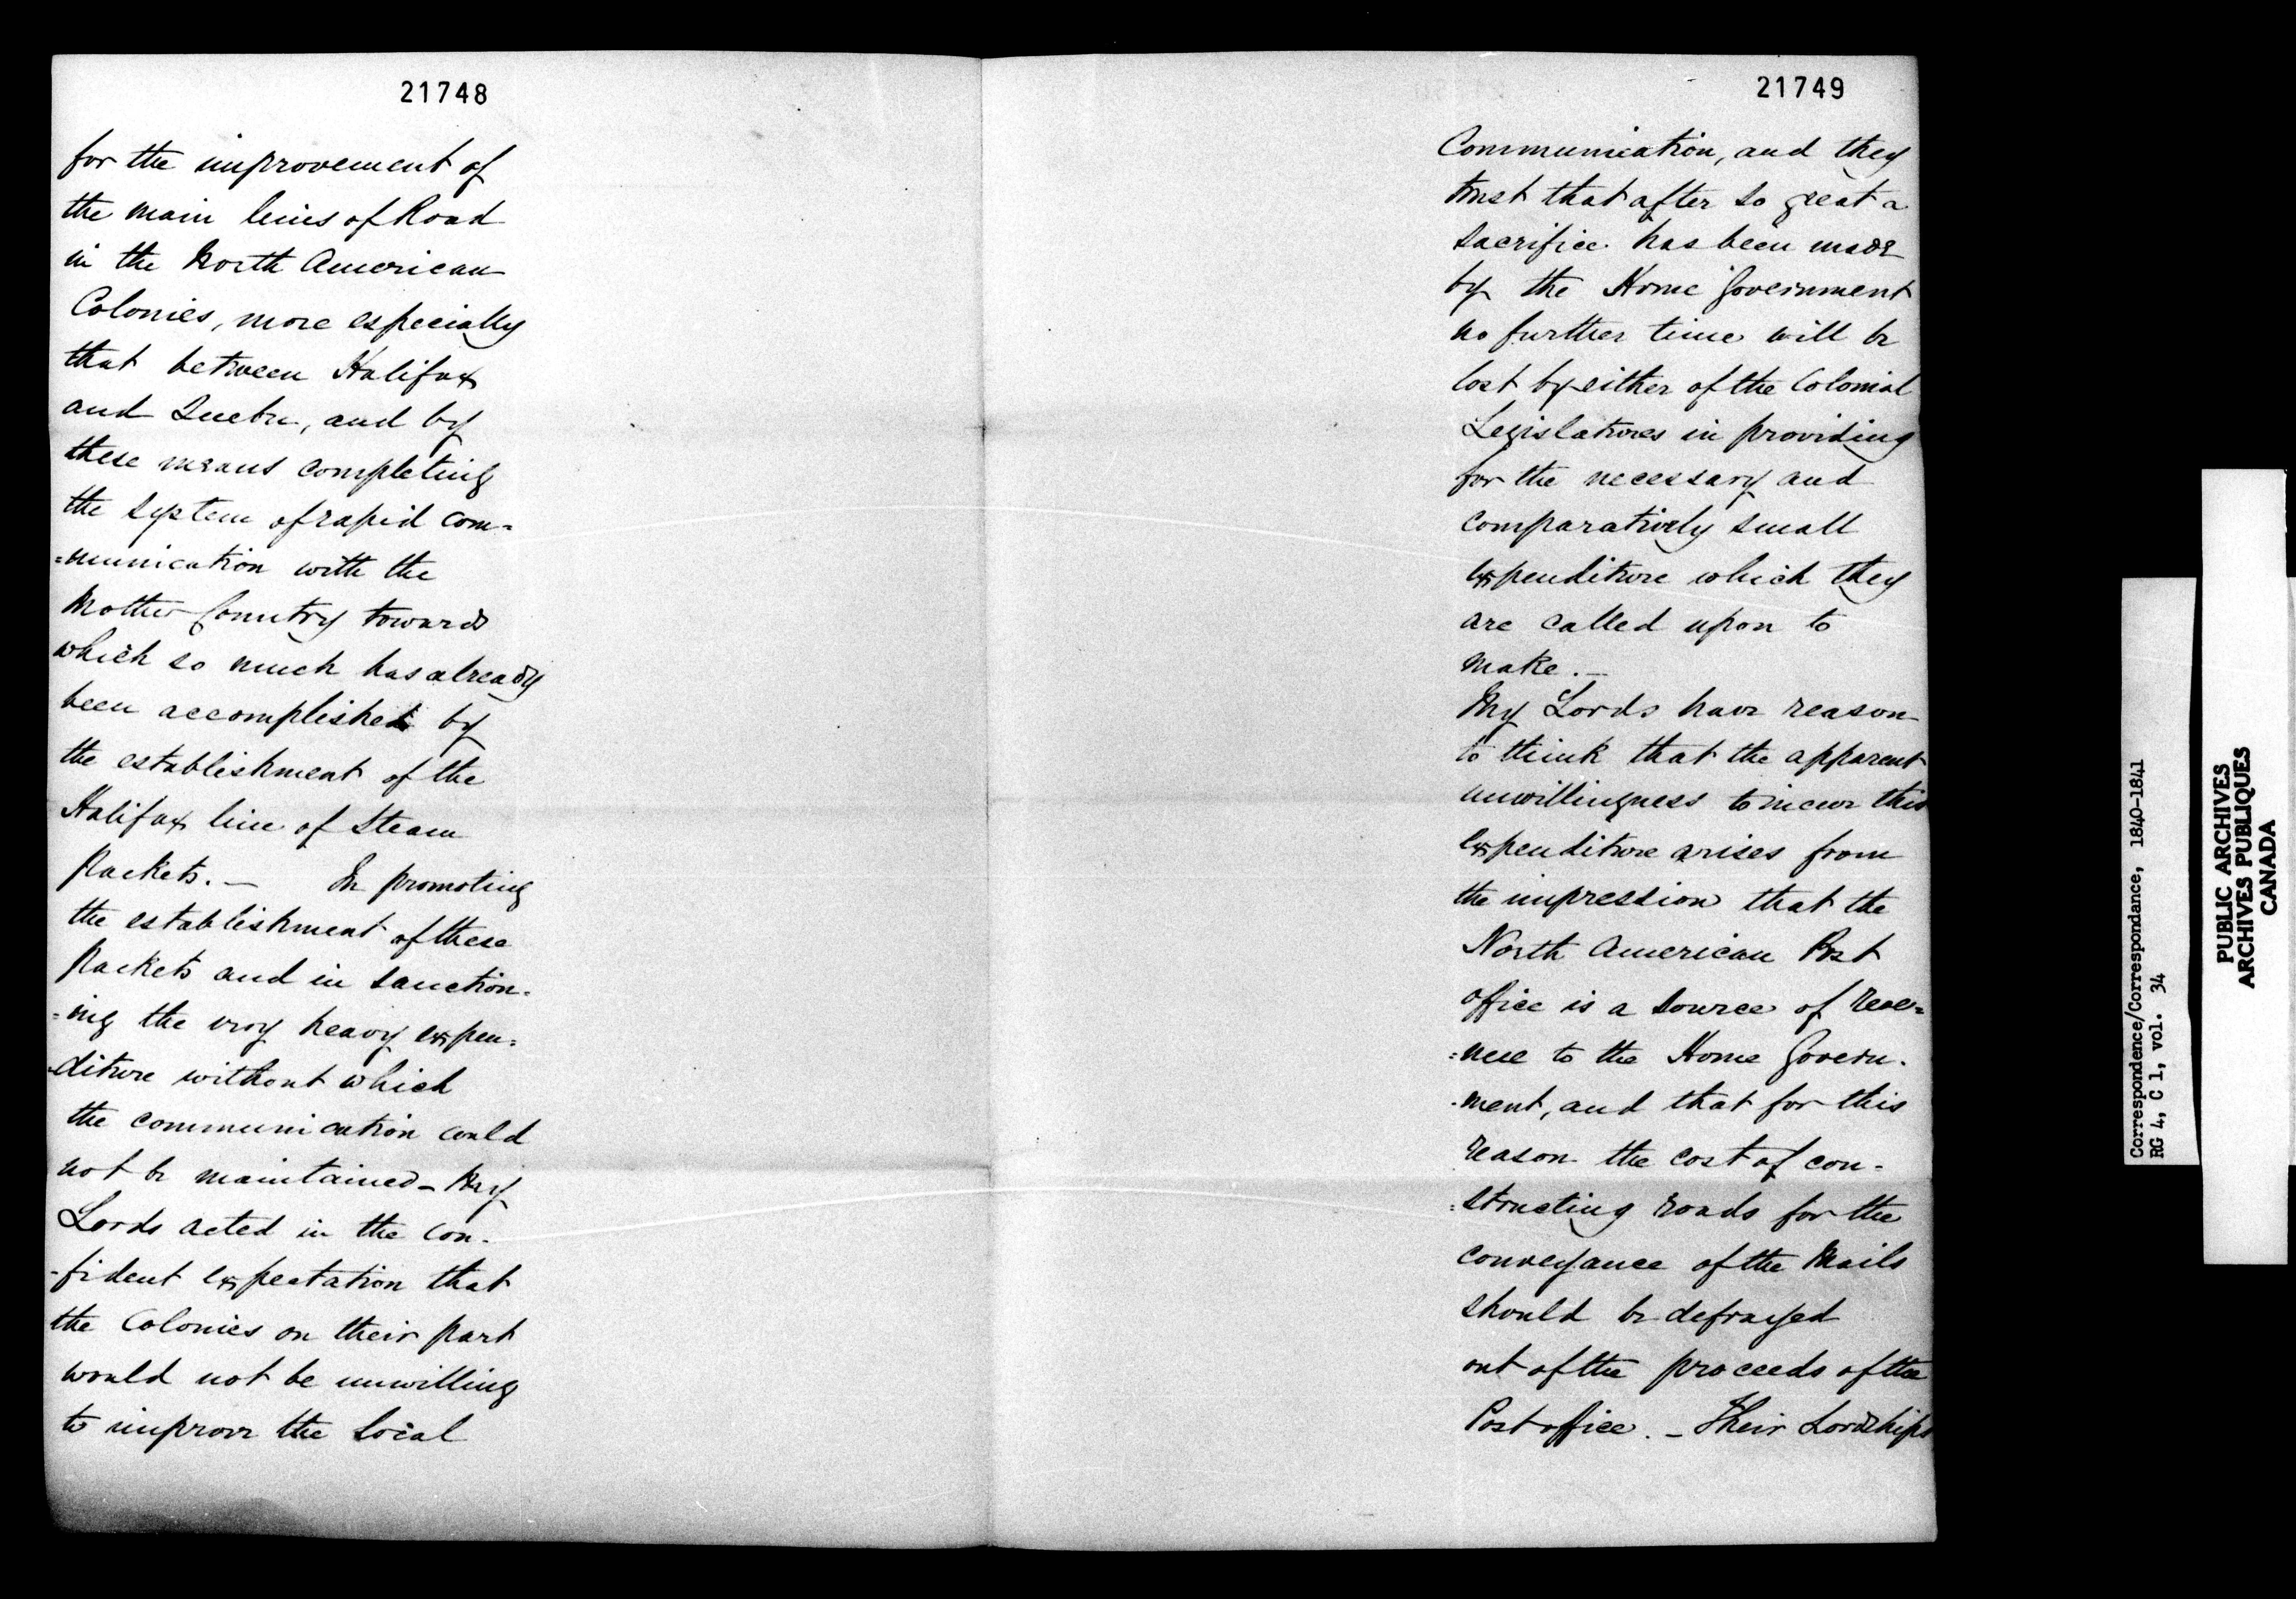 21748
for the improvement of
the main lines of Road
in the North American
Colonies, more especially
that between Halifax
and Quebec, and by
these means completing
the system of rapid com=
=munication with the
Mother Country towards
which so much has already
been accomplished by
the establishment of the
Halifax line of Steam
Packets. — In promoting
the establishment of these
Packets and in sanction-
=ing the very heavy expen=
-diture without which
the communication could
not be maintained - My
Lords acted in the con-
-fident expectation that
the Colonies on their part
would not be unwilling
to improve the local
21749
Communication, and they
trust that after so great a
sacrifice has been made
by the Home Government
no further time will be
lost by either of the Colonial
Legislatures in providing
for the necessary and
comparatively small
expenditure which they
are called upon to
make. —
My Lords have reason
to think that the apparent
unwillingness to incur this
expenditure arises from
the impression that the
North American Post
office is a source of reve=
=nue to the Home Govern-
-ment, and that for this
reason the cost of con-
=structing roads for the
conveyance of the Mails
should be defrayed
out of the proceeds of the
Post office. - Their Lordships
Correspondence/Correspondance, 1840-1841
RG 4, C 1, vol. 34
PUBLIC ARCHIVES
ARCHIVES PUBLIQUES
CANADA